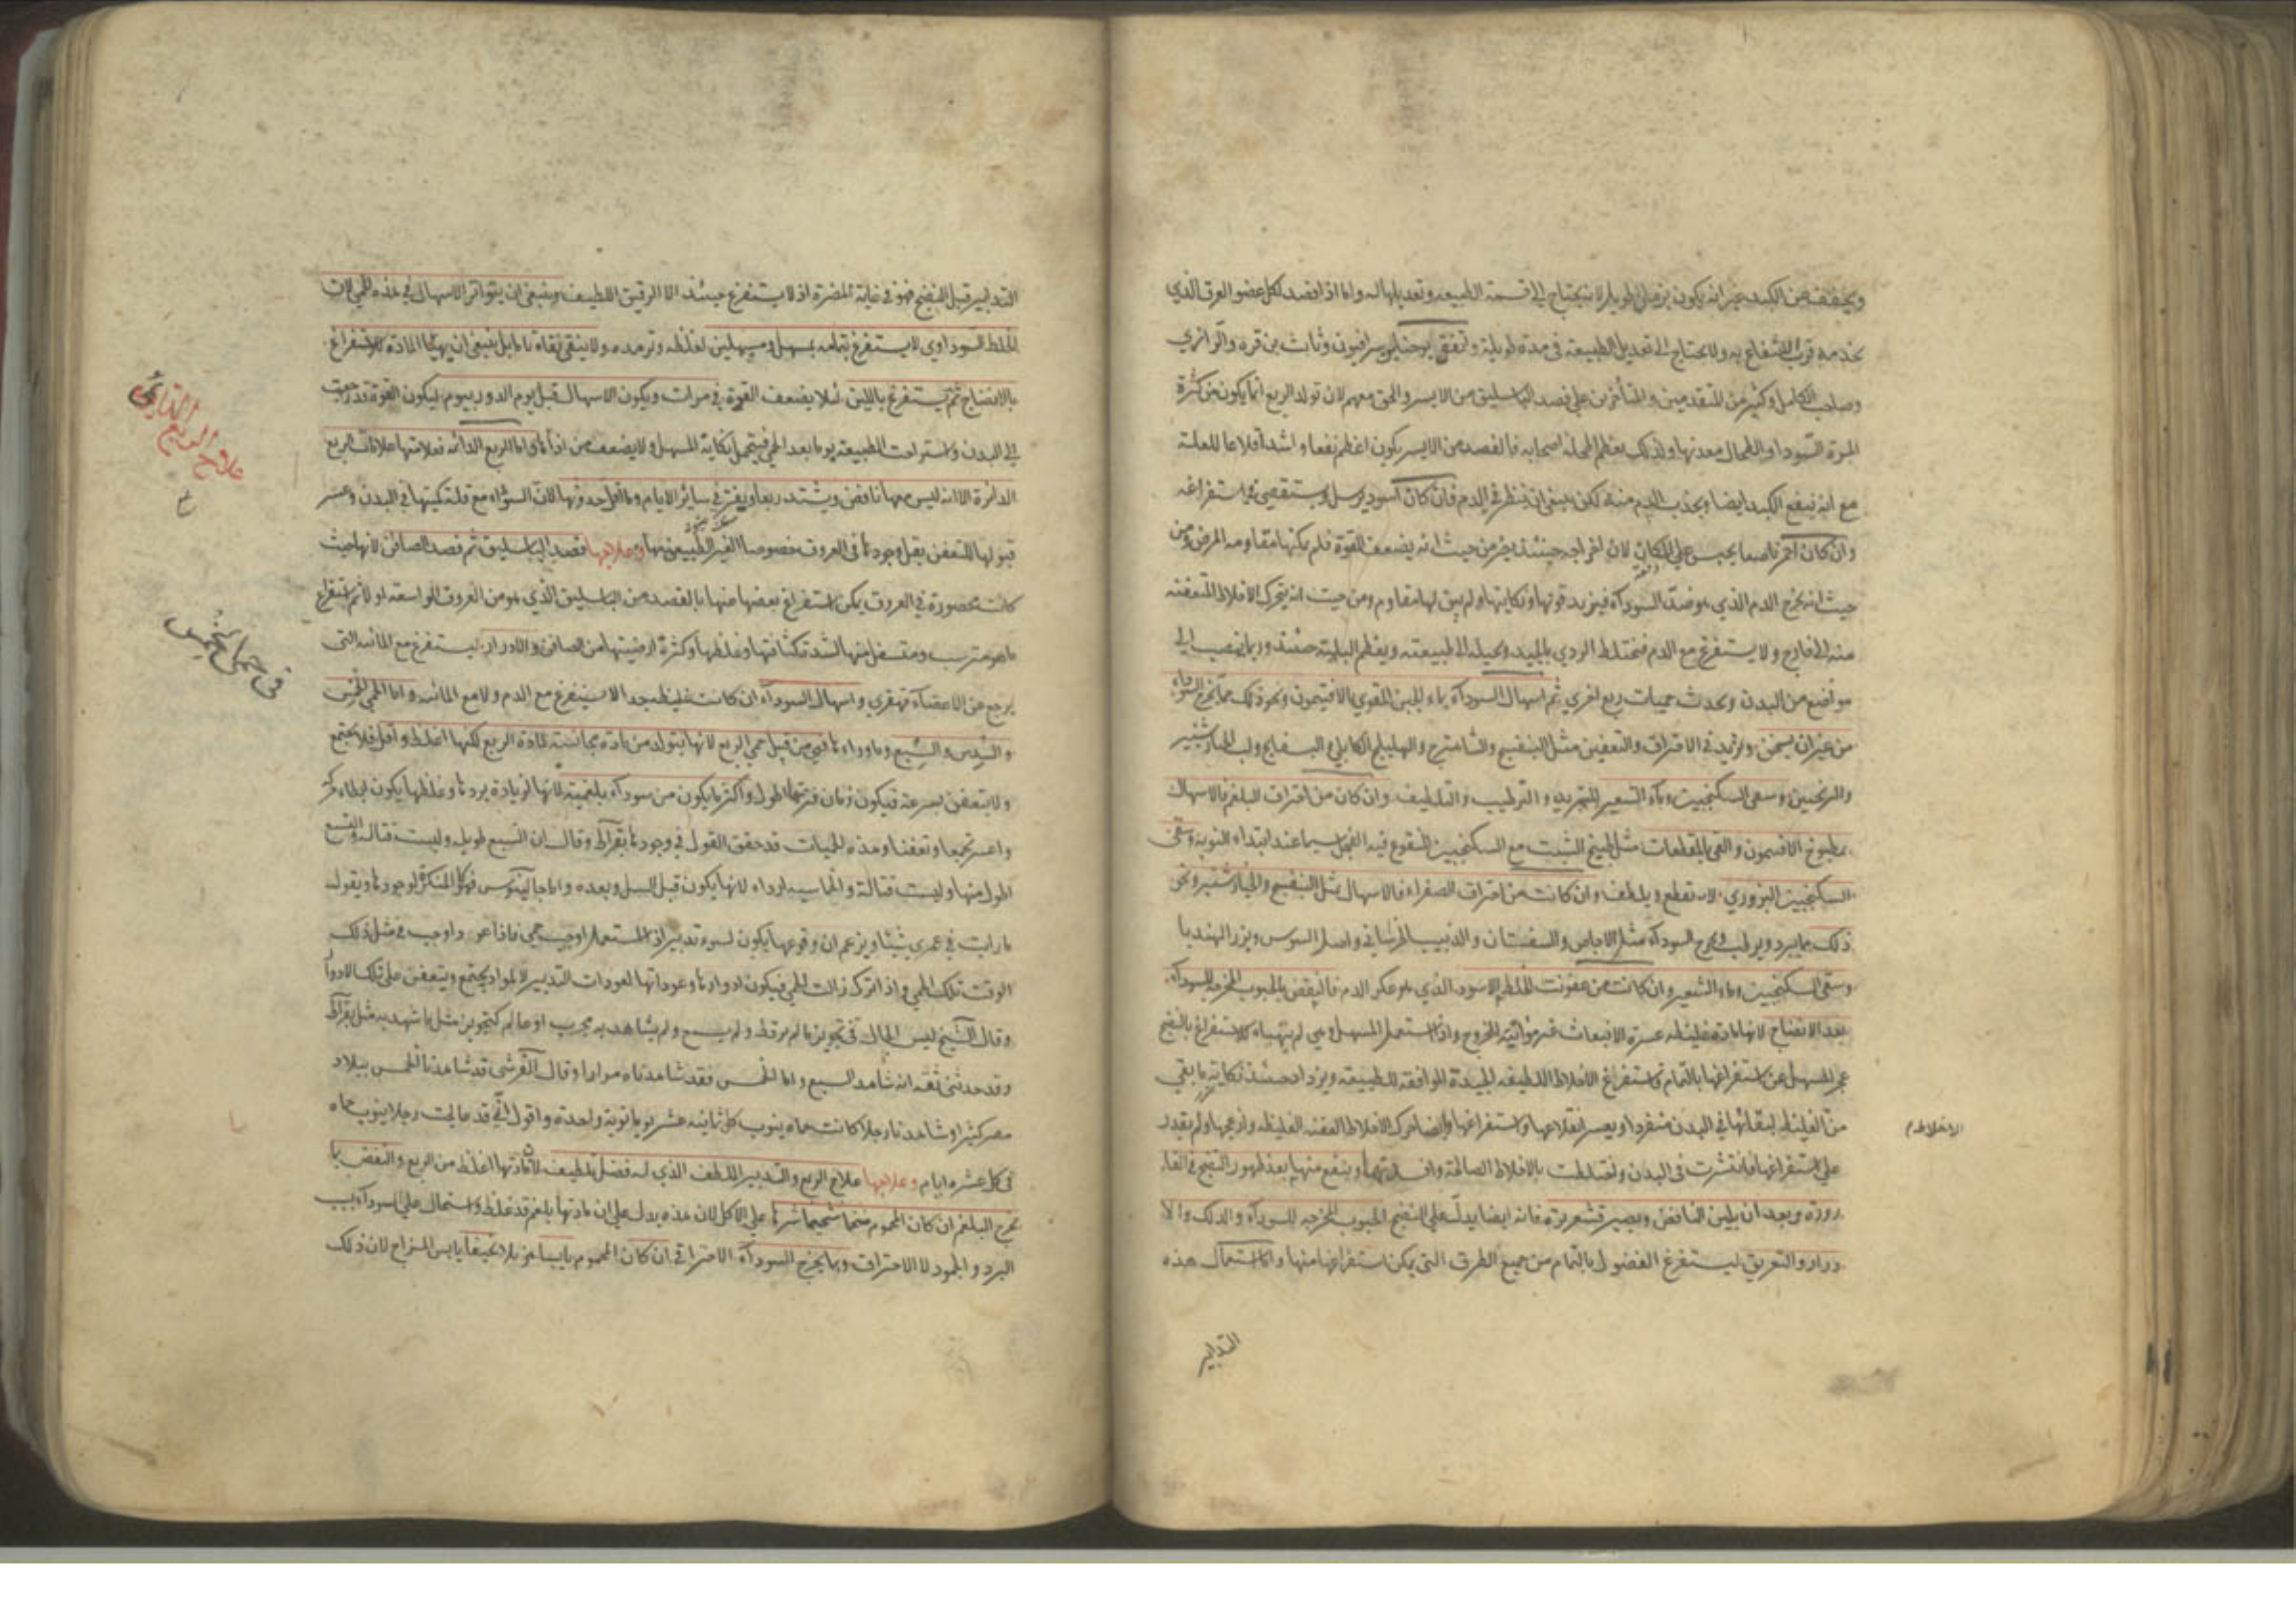 ويخفف عن الكبد غير انه يكون بزمان طويل لانه يحتاج الى قسمة الطبيعه وتعديلها له واما اذا فصد لكل عضو العرق الذي
يخدمه قرب الانتفاع به ولا يحتاج الى تعديل الطبيعة فى مدة طويلة واتفق يوحنا بن سرافيون وثابت بن قره والرازي
وصاحب الكامل وكثير من المتقدمين والمتأخرين على فصد الباسليق من الايسر والحق معهم لان تولد الربع انما يكون من كثرة
المرة السودا والطحال معدنها ولذلك يعظم الطحال اصحابه فالفصد من الايسر يكون اعظم نفعا واشد اقلاعا للعلة
مع انه ينفع الكبد ايضا ويجذب الدم منه لكن ينبغى ان ينظر فى الدم فان كان اسود يرسل ويستقصى فى استفراغه
وان كان احمر ناصعا يحبس على المكان لان اخراجه حينئذ يضر من حيث انه يضعف القوة فلم يمكنها مقاومه المرض ومن
حيث انه يخرج الدم الذي هو ضد السودآء فيزيد قوتها ونكايتها ولم يبق لها مقاوم ومن حيث انه يتحرك الاخلاط المتعفنه
منه الى خارج ولا يستفرغ مع الدم فيختلط الردي بالجيد ويحيله الى طبيعته ويعظم البلية حينئذ وربما ينصب الى
مواضع من البدن ويحدث حميات ربع اخري ثم اسهال السودآء بماء الجبن المقوي بالافتيمون ونحو ذلك مما يخرج السوداء
من غير ان يسخن ويزيد فى الاحتراق والتعفين مثل البنفسج والشاهترج والهليلج الكابلى والبسفايج ولب الخيارشنبر
والترنجبين وسقى السكنجبين وماء الشعير للتبريد والترطيب والتلطيف وان كان من احتراق البلغم فالاسهال
بمطبوخ الافتيمون والقى بالمقطعات مثل طبيخ الشبت مع السكنجبين المنقوع فيه الفجل سيما عند ابتداء النوبه وسقى
السكنجبين البزوري لانه يقطع ويلطف وان كانت من احتراق الصفراء فالاسهال بمثل البنفسج والخيارشنبر ونحو
ذلك مما يبرد ويرطب ويخرج السودآء مثل الاجاص والسفستان والزبيب الخراسانى واصل السوس وبزر الهندبا
وسقى السكنجبين وماء الشعير وان كانت من عفونت الخلط الاسود الذي هو عكر الدم فالينقض بالحبوب المخرجه للسودآء
بعد الانضاج لانها مادة غليظه عسرة الانبعاث غير مواتية للخروج واذا استعمل المسهل وهى لم يتهيأ للاستفراغ بالنضج
عجز المسهل عن استفراغها بالتمام فاستفراغ الاخلاط اللطيفه الجيدة الموافقة للطبيعة ويزداد حينئذ نكاية ما بقى
من الغليظه لبقائها فى البدن منفردا ويعسر انقلاعها واستفراغها وايضا حرك الاخلاط العفنه الغليظه وازعجها ولم يقدر
على استفراغها فانتشرت فى البدن واختلطت بالاخلاط الصالحة وافسدتها وينفع منها بعد ظهور النضج فى القا
رورة وبعد ان يلين النافض ويصير قشعريرة فانه ايضا يدل على النضج الحبوب المخرجه للسودآء والدلك والا
درار والتعريق ليستفرغ الفضول بالتمام من جميع الطرق التى يمكن استفراغها منها واما استعمال هذه
التدابير
الاخلاط م
التدابير قبل النضج فهو فى غاية المضرة اذ لا يستفرغ حينئذ الا الرقيق اللطيف وينبغى ان يتواتر الاسهال فى هذه الحمى لان
الخلط السوداوي لا يستفرغ بتمامه بمسهل ومسهلين لغلظه وترمده ولا ينقى نقاء تاما بل ينبغى ان يهيأ المادة للاستفراغ
بالانضاج ثم يستفرغ باللين لئلا يضعف القوة فى مرات ويكون الاسهال قبل يوم الدور بيوم ليكون القوة قد رجعت
الى البدن واستراحت الطبيعة يوما بعد الحمى فيتحمل نكاية المسهل ولا يضعف من اذاها واما الربع الدائمه فعلامتها علامات الربع
الدائرة الا انه ليس معها نافض ويشتد ربعا ويفتر فى سائر الايام وما اقل حدوثها لان السودآء مع قلة كميتها فى البدن وعسر
قبولها للتعفن يقل وجودها فى العروق خصوصا الغير الطبيعى منها وعلاجها فصد الباسليق ثم فصد الصافن لانها حيث
كانت محصورة فى العروق يمكن استفراغ بعضها منها بالفصد من الباسليق الذي هو من العروق الواسعة اولا ثم استفراغ
ما هو مترسب ومتسفل منها لشدة كثافتها وغلظها وكثرة ارضيتها من الصافن والادرار ليستفرغ مع المائيه التى
يرجع عن الاعضآء قهقري واسهال السودآء ان كانت غليظه جدا لا يستفرغ مع الدم ولا مع المائيه واما الحمى الخمس
والسدس والسبع وما وراءها فهى من قبيل حمى الربع لانها يتولد من مادة مجانسة لمادة الربع لكنها اغلظ واقل فلا يجتمع
ولا يتعفن بسرعة فيكون زمان فترتها اطول واكثر ما يكون من سودآء بلغمية لانها لزيادة بردها وغلظها يكون ابطاء حركة
واعسر تجمعا وتعفنا وهذه الحميات قد حقق القول فى وجودها بقرآط وقال ان السبع طويله وليست قتالة والتسع
اطول منها وليست قتالة والخماسيه اردأ لانها يكون قبل السل وبعده واما جالينوس فهو كالمنكر لوجودها ويقول
ما رايت فى عمري شيئا ويزعم ان وقوعها يكون لسوء تدبير اذا استعمل اوجب حمى فاذا عود اوجب فى مثل ذلك
الوقت تلك الحمى واذا ترك زالت الحمى فيكون ادوارها وعوداتها لعودات التدبير لا لمواد يجتمع ويتعفن على تلك الادوار
وقال الشيخ ليس الحال فى تجويز ما لم ير قط ولم يسمع ولم يشاهد به مجرب او عالم كتجويز مثل ما شهد به مثل بقرآط
وقد حدثنى ثقة انه شاهد السبع واما الخمس فقد شاهدناه مرارا وقال القرشى قد شاهدنا الخمس ببلاد
مصر كثيرا وشاهدنا رجلا كانت حماه ينوب كل ثمانيه عشر يوما نوبة واحدة واقول انى قد عالجت رجلا ينوب حماه
فى كل عشره ايام وعلاجها علاج الربع والتدبير الملطف الذي له فضل تلطيف لان مادتها اغلظ من الربع والنفض بما
يخرج البلغم ان كان المحموم ضخما شحيما شرها على الاكل لان هذه يدل على ان مادتها بلغم قد غلظ واستحال الى السودآء بسبب
البرد والجمود لا الاحتراق وبما يخرج السودآء الاحتراقى ان كان المحموم يابسا مهزولا نحيفا يابس المزاج لان ذلك
علاج الربع الدايمى
فى حمى الخمس